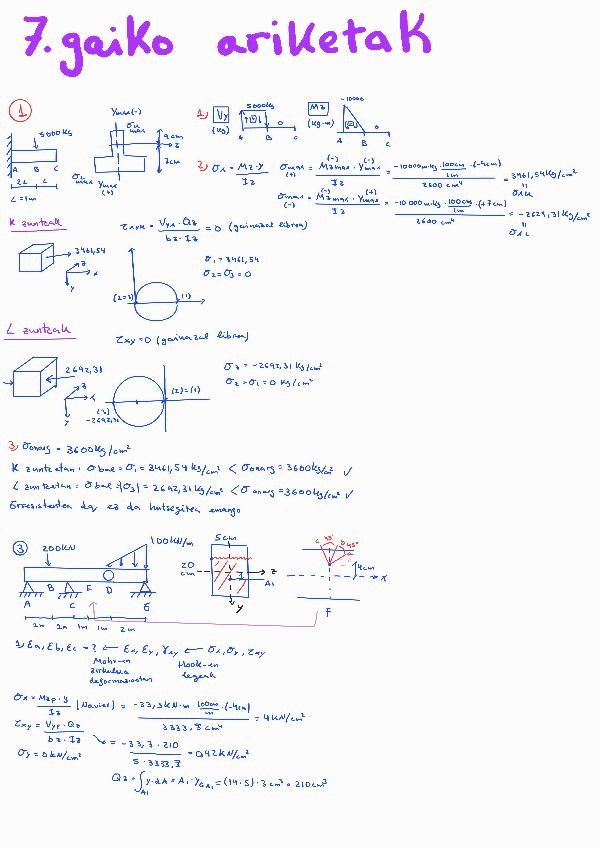 7. gaiko ariketak
1
5000kg
A B C
2L L
L=1m
Ymax(-)
σk max
9cm
z
7cm
σL max Ymax (+)
1) Vy (kg)
5000kg
0
A B C
Mz (kg·m)
-10000
0
A B C
2) σx = Mz·y / Iz
σmax (+) = Mzmax(-)·Ymax(-) / Iz = -10000m·kg·100cm/1m·(-9cm) / 2600 cm⁴ = 3461,54kg/cm²
σmax (-) = Mzmax(-)·Ymax(+) / Iz = -10000m·kg·100cm/1m·(+7cm) / 2600 cm⁴ = -2692,31kg/cm²
K zuntzak
τxyk = Vyk·Qz / bz·Iz = 0 (gainazal librea)
3461,54
z
x
y
σ1=3461,54
σ2=σ3=0
(2=3) (1)
L zuntzak
τxy=0 (gainazal librea)
2692,31
z
x
y
σ3 = -2692,31 kg/cm²
σ2=σ1=0 kg/cm²
(2)=(1)
(3)
-2692,31
3) σonarg = 3600kg/cm²
K zuntzetan: σbal=σ1=3461,54kg/cm² < σonarg=3600kg/cm² ✓
L zuntzetan: σbal=|σ3|=2692,31kg/cm² < σonarg=3600kg/cm² ✓
Erresistentea da, ez da hutsegitea emango
3
200KN
100KN/m
A B C F D E
2m 2m 1m 1m 2m
5cm
20 cm
z
A1
y
c 45° b 45° a
4cm
x
F
1) εa, εb, εc = ? ← εx, εy, γxy ← σx, σy, τxy
Mohr-en zirkulua deformazioetan
Hook-en legeak
σx = MzF·y / Iz (Navier) = -33,3KN·m·100cm/m·(-4cm) / 3333,3 cm⁴ = 4KN/cm²
τxy = VyF·Qz / bz·Iz = -33,3·210 / 5·3333,3 = 0,42KN/cm²
σy=0KN/cm²
Qz = ∫A1 y·dA = A1·yGA1 = (14·5)·3cm³ = 210cm³